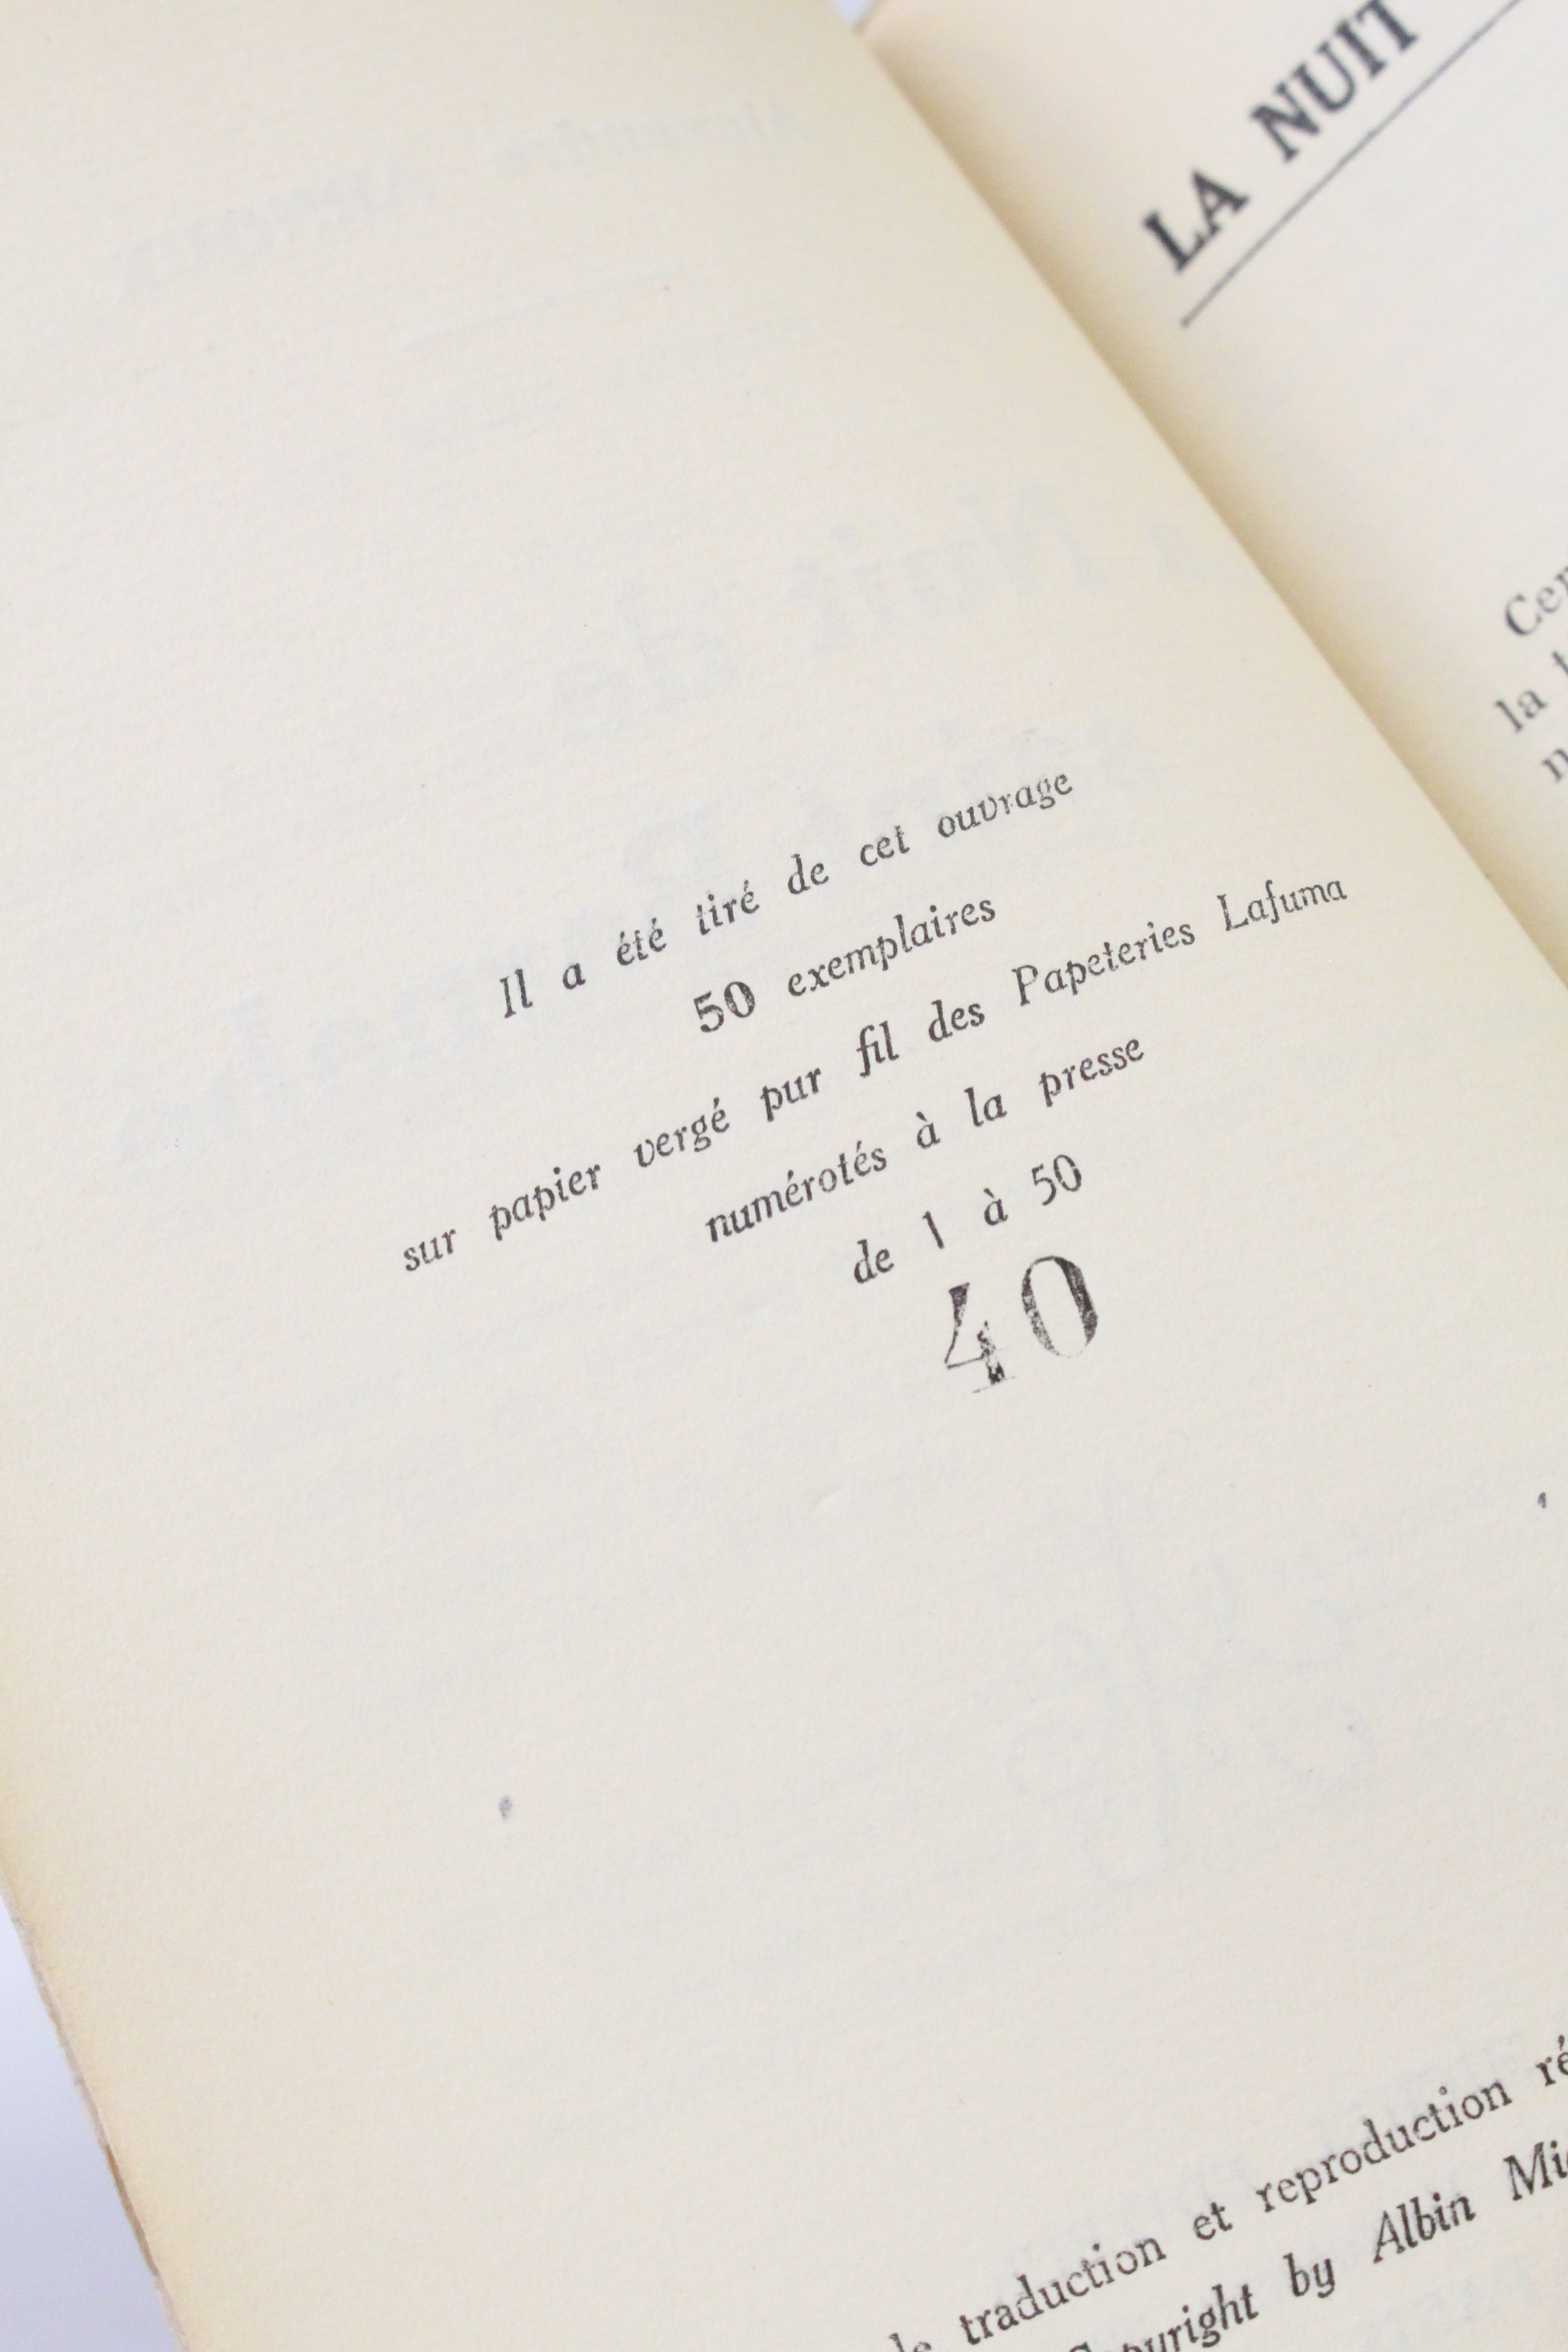 Il a été tiré de cet ouvrage
50 exemplaires
sur papier vergé pur fil des Papeteries Lafuma
numérotés à la presse
de 1 à 50
40
traduction et reproduction
by Albin
LA NUIT
la